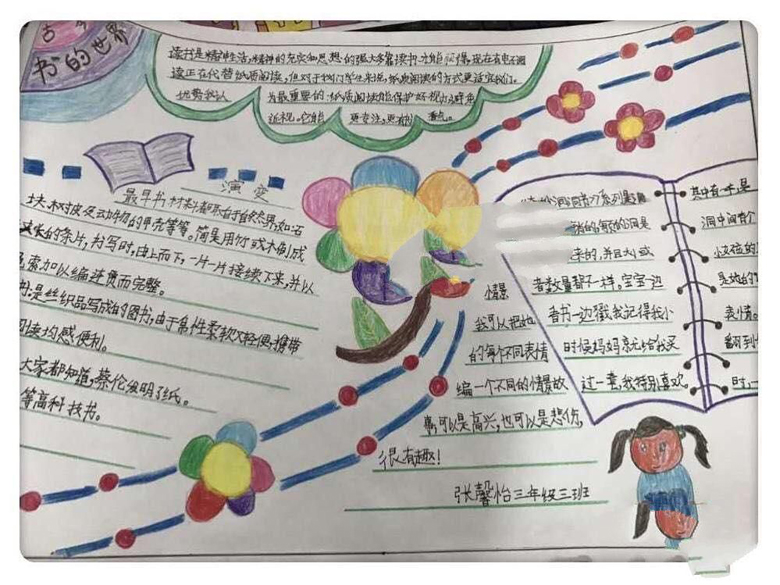 古
书的世界
读书是精神生活,精神的充实和思想的强大靠读书才能获得,现在有电子阅
读正在代替纸质阅读,但对于我们学生来说,纸质阅读的方式更适宜我们。
优势我认
为最重要的:纸质阅读能保护好视力
近视。它能
更专注,更有
演变
最早书材料都取自于自然界,如石
块、树皮及动物的甲壳等等。简是用竹或木削成
的条片,书写时,由上而下,一片一片接续下来,并以
索加以编连贯而完整。
是丝织品写成的图书,由于帛性柔软又轻便,携带
阅读均感便利。
大家都知道,蔡伦发明了纸。
等高科技书。
来的,并且大小或
者数量都不一样,宝宝一边
看书一边戳我记得我小
时候妈妈就给我买
过一套,我特别喜欢。
其中有一
洞中间有个
是她的
表情。
翻到
时,一
情景
我可以把她
的每个不同表情
编一个不同的情景故
事,可以是高兴,也可以是悲伤,
很有趣!
张馨怡三年级三班